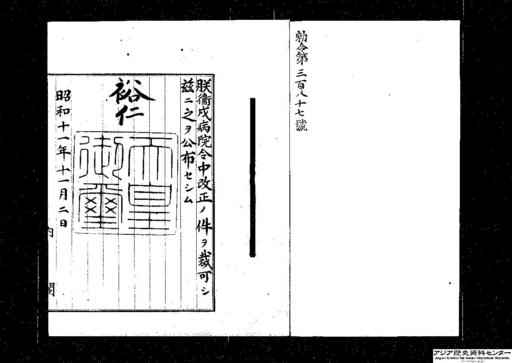 勅令第三百八十七號
朕衞戍病院令中改正ノ件ヲ裁可シ
茲ニ之ヲ公布セシム
裕仁
天皇
御璽
昭和十一年十一月二日
内閣
アジア歴史資料センター
Japan Center for Asian Historical Records